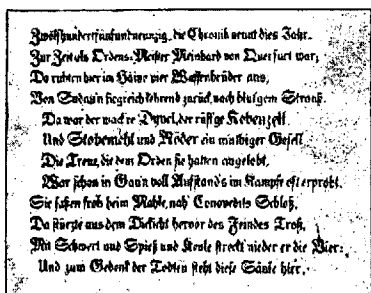 Zwölfhundertfünfundneunzig, die Chronik nennt dies Jahr,
Zur Zeit als Ordens-Meister Meinhard von Querfurt war;
Da ruhten hier im Haine vier Waffenbrüder aus,
Von Sudau'n siegreich kehrend zurück nach blut'gem Strauß.
Da war der wack're Dywel, der rüst'ge Kobenzell,
Und Stobemehl und Röder ein muthiger Gesell
Die Treue, die dem Orden sie hatten angelobt,
War schon in Gau'n voll Aufstands im Kampfe oft erprobt.
Sie saßen froh beim Mahle, nah' Conowedits Schloß,
Da stürzte aus dem Dickicht hervor des Feindes Troß,
Mit Schwert und Spieß und Keule streckt nieder er die Vier:
Und zum Gedenk der Todten steht diese Säule hier.